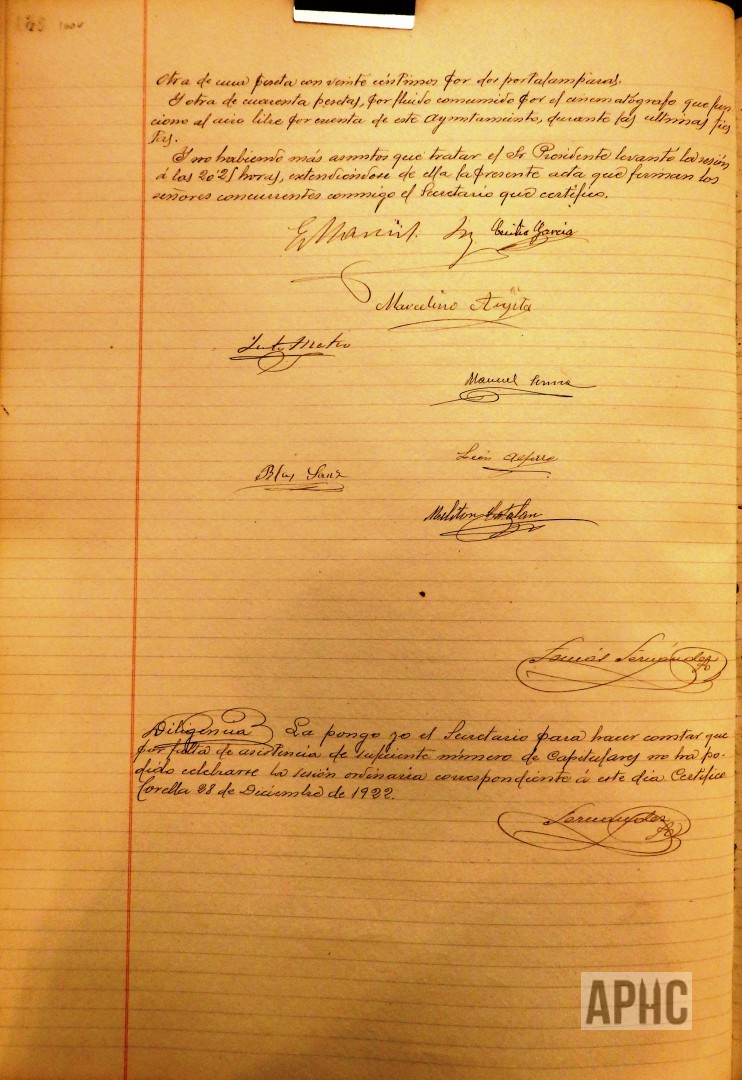 Otra de una peseta con veinte céntimos por dos portalámparas.
Y otra de cuarenta pesetas, por fluido consumido por el cinematógrafo que fun-
ciono al aire libre por cuenta de este Ayuntamiento, durante las ultimas fies-
tas.
Y no habiendo más asuntos que tratar el Sr. Presidente levantó la sesión
á las 20'25 horas, extendiéndose de ella la presente acta que firman los
señores concurrentes conmigo el Secretario que certifico.
Emilio Garcia
Marcelino
Manuel
Blas Sanz
León
Meliton Catalan
Fernández
Diligencia La pongo yo el Secretario para hacer constar que
por falta de asistencia de suficiente número de Capitulares no ha po-
dido celebrarse la sesión ordinaria correspondiente á este dia Certifico
Corella 28 de Diciembre de 1922.
Fernández
APHC